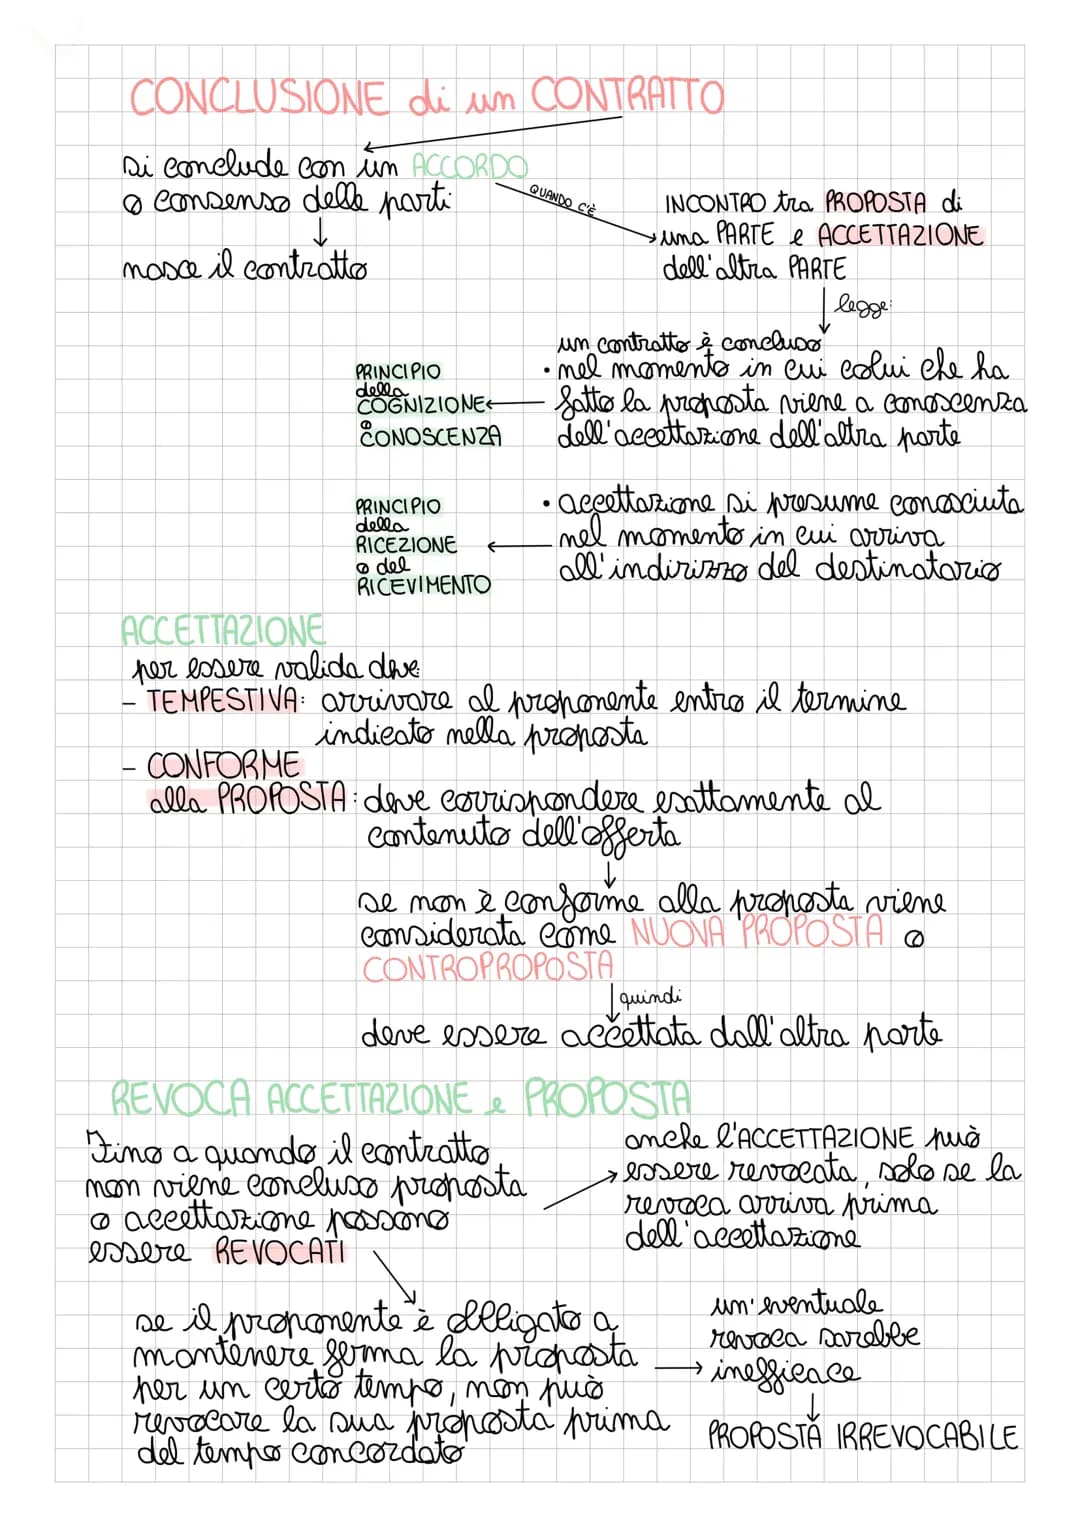 CONCLUSIONE di un CONTRATTO
si conclude con un ACCORDO
o consenso delle parti
nasce il contratto
QUANDO C'È
INCONTRO tra PROPOSTA di
una PARTE e ACCETTAZIONE
dell'altra PARTE
legge:
un contratto è concluso
• nel momento in cui colui che ha
fatto la proposta viene a conoscenza
dell'accettazione dell'altra parte
PRINCIPIO
della
COGNIZIONE
o
CONOSCENZA
• accettazione si presume conosciuta
nel momento in cui arriva
all'indirizzo del destinatario
PRINCIPIO
della
RICEZIONE
o del
RICEVIMENTO
ACCETTAZIONE
per essere valida deve:
- TEMPESTIVA: arrivare al proponente entro il termine
indicato nella proposta
- CONFORME
alla PROPOSTA: deve corrispondere esattamente al
contenuto dell'offerta
se non è conforme alla proposta viene
considerata come NUOVA PROPOSTA o
CONTROPROPOSTA
quindi
deve essere accettata dall'altra parte
REVOCA ACCETTAZIONE e PROPOSTA
Fino a quando il contratto
non viene concluso proposta
o accettazione possono
essere REVOCATI
anche l'ACCETTAZIONE può
essere revocata, solo se la
revoca arriva prima
dell'accettazione
se il proponente è obbligato a
mantenere ferma la proposta
per un certo tempo, non può
revocare la sua proposta prima
del tempo concordato
un'eventuale
revoca sarebbe
inefficace
PROPOSTA IRREVOCABILE